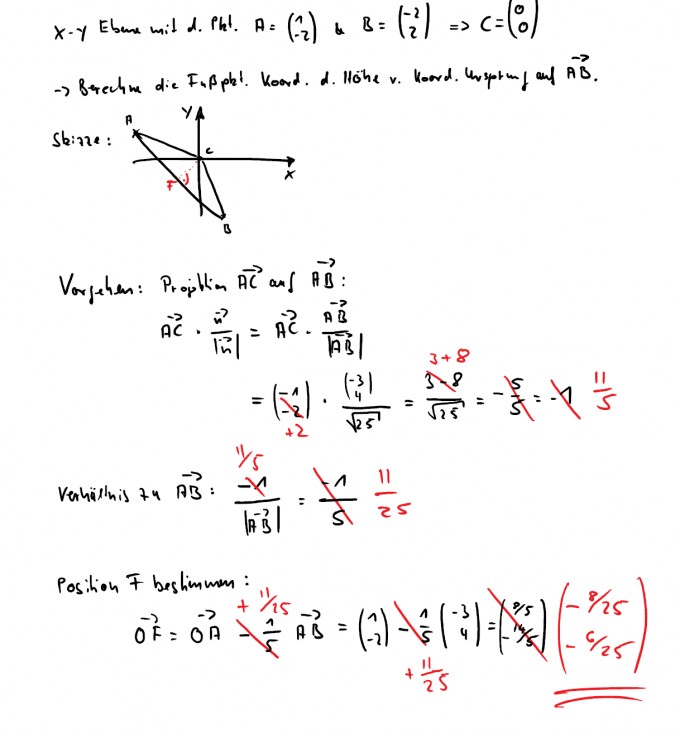 X-Y Ebene mit d. Pkt. A = (1 -2) & B = (-2 2) => C = (0 0)
-> Berechne die Fußpkt. Koord. d. Höhe v. Koord. Ursprung auf AB.
Skizze: A Y C X F B
Vorgehen: Projektion AC auf AB:
AC · n/|n| = AC · AB/|AB|
3 + 8
= (-1 -2) · (-3 4)/√25 = 3 - 8/√25 = - 5/5 = -1 11/5
+2
11/5
Verhältnis zu AB: -1/|AB| = -1/5 11/25
Position F bestimmen:
+ 11/25
OF = OA - 1/5 AB = (1 -2) - 1/5 (-3 4) = (8/5 -14/5) (-8/25 -6/25)
+ 11/25